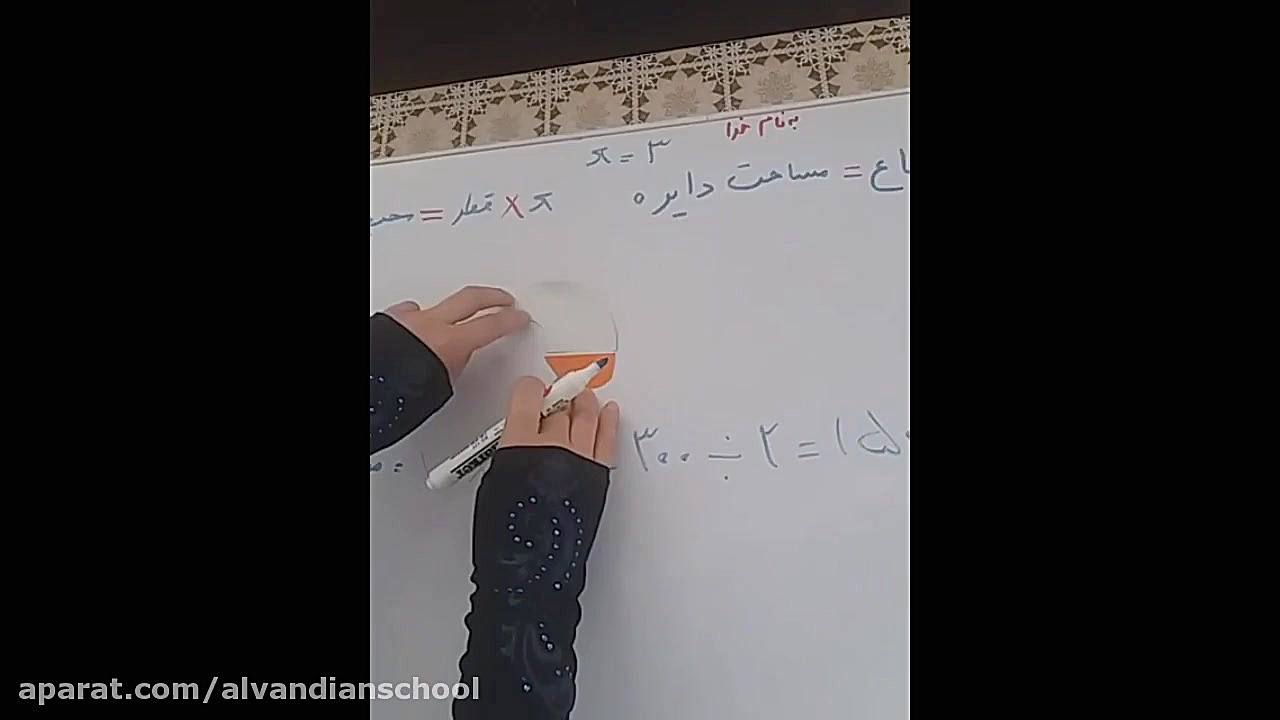 به نام خدا
π = ۳
مساحت دایره =
قطر × π
۳۰۰ ÷ ۲ = ۱۵۰
aparat.com/alvandianschool